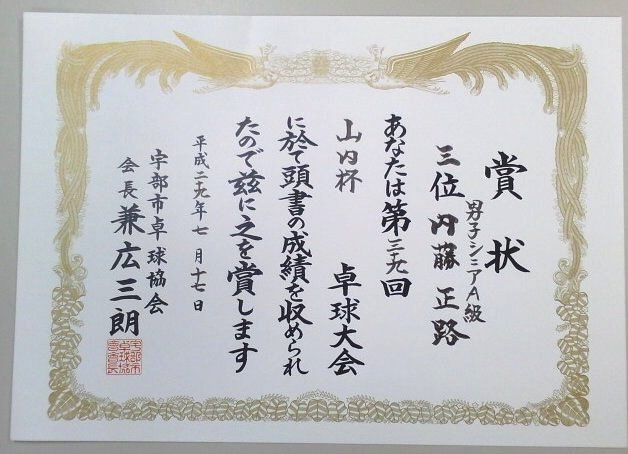 賞状
男子シニアA級
三位 内藤 正路
あなたは第三十九回
山内杯 卓球大会
に於て頭書の成績を収められ
たので茲に之を賞します
平成二十九年七月十七日
宇部市卓球協会
会長 兼広三朗